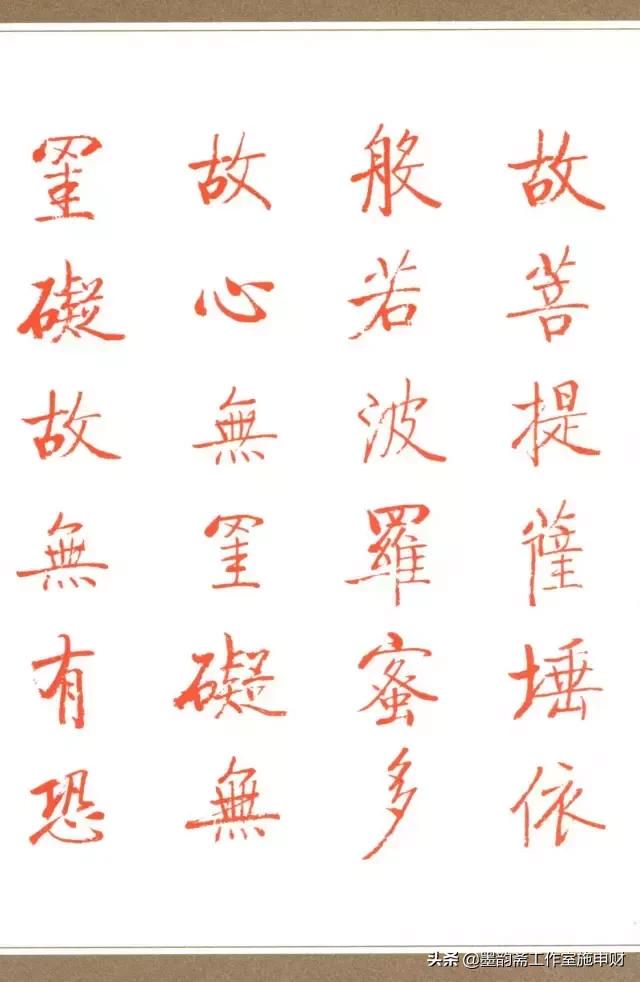 故菩提薩埵依
般若波羅蜜多
故心無罣礙無
罣礙故無有恐
头条 @墨韵斋工作室施申财